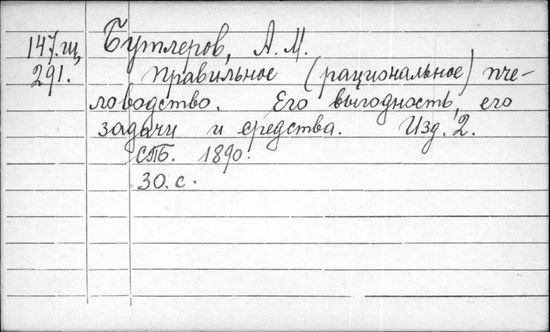 147.щ, Бутлеров, А. М.
291. Правильное (рациональное) пче-
ловодство. Его выгодность, его
задачи и средства. Изд. 2.
СПБ. 1890.
30. с.